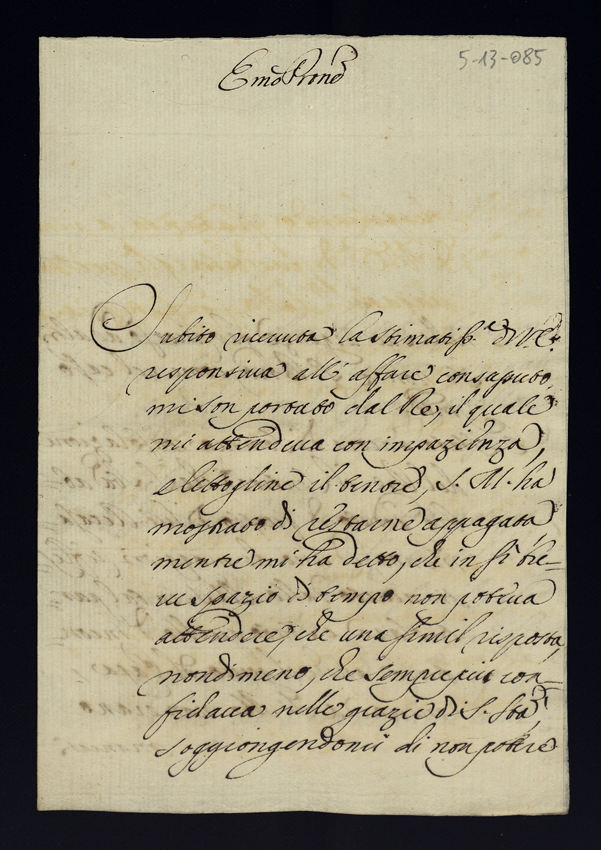 5-13-085
Emo Prone
Subito ricevuta la stimatiss.a di V.E.
responsiva all' affare consaputo,
mi son portato dal Re, il quale
mi attendeva con impazienza,
e lettogline il tenore, S. M. ha
mostrato di restarne appagata
mentre mi ha detto, che in sì bre=
ve spazio di tempo non poteva
attendere, che una simil risposta,
nondimeno, che sempre più con=
fidava nelle grazie di S. Stà
soggiongendomi di non potere